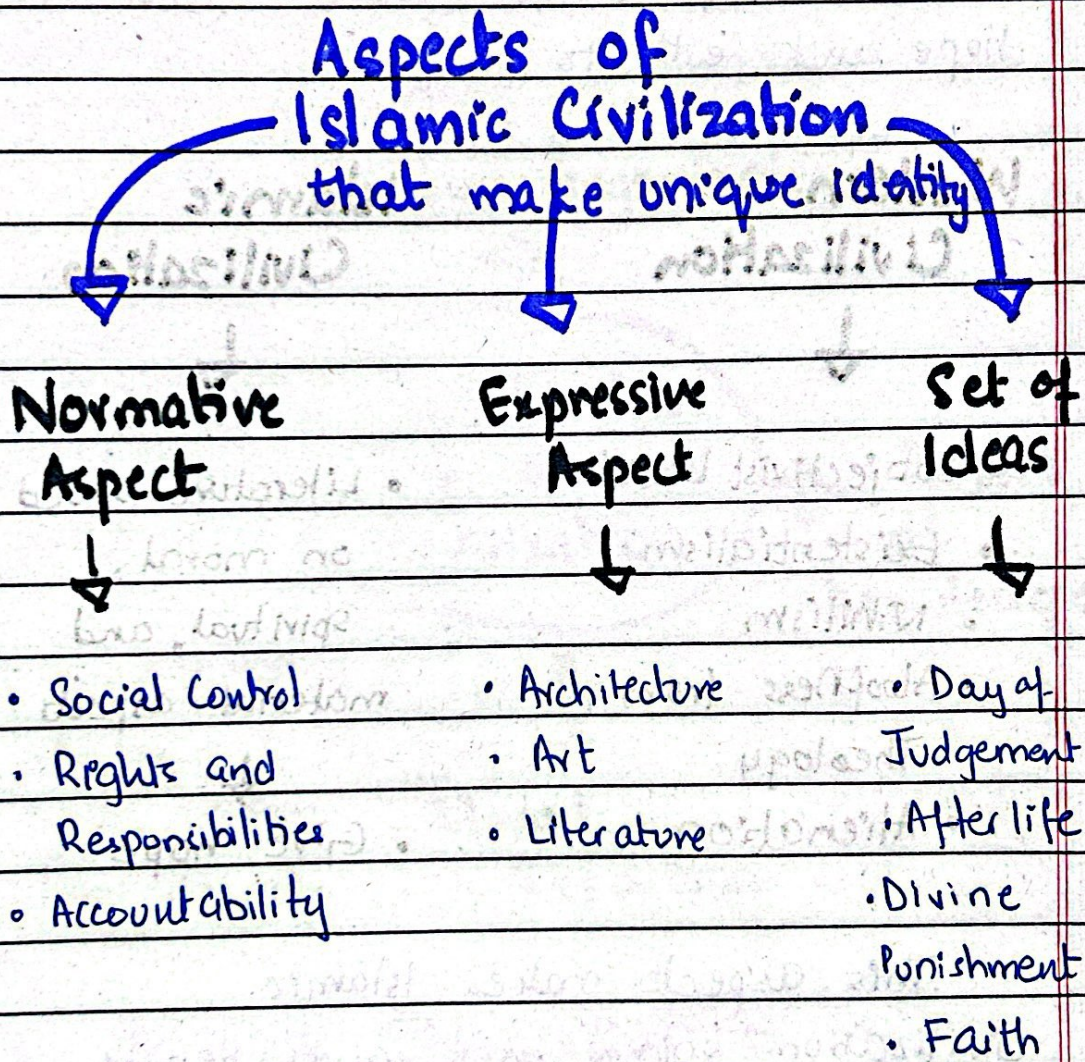 Aspects of
Islamic Civilization
that make unique identity
Normative
Aspect
• Social Control
• Rights and
Responsibilities
• Accountability
Expressive
Aspect
• Architecture
• Art
• Literature
Set of
Ideas
• Day of
Judgement
• After life
• Divine
Punishment
• Faith